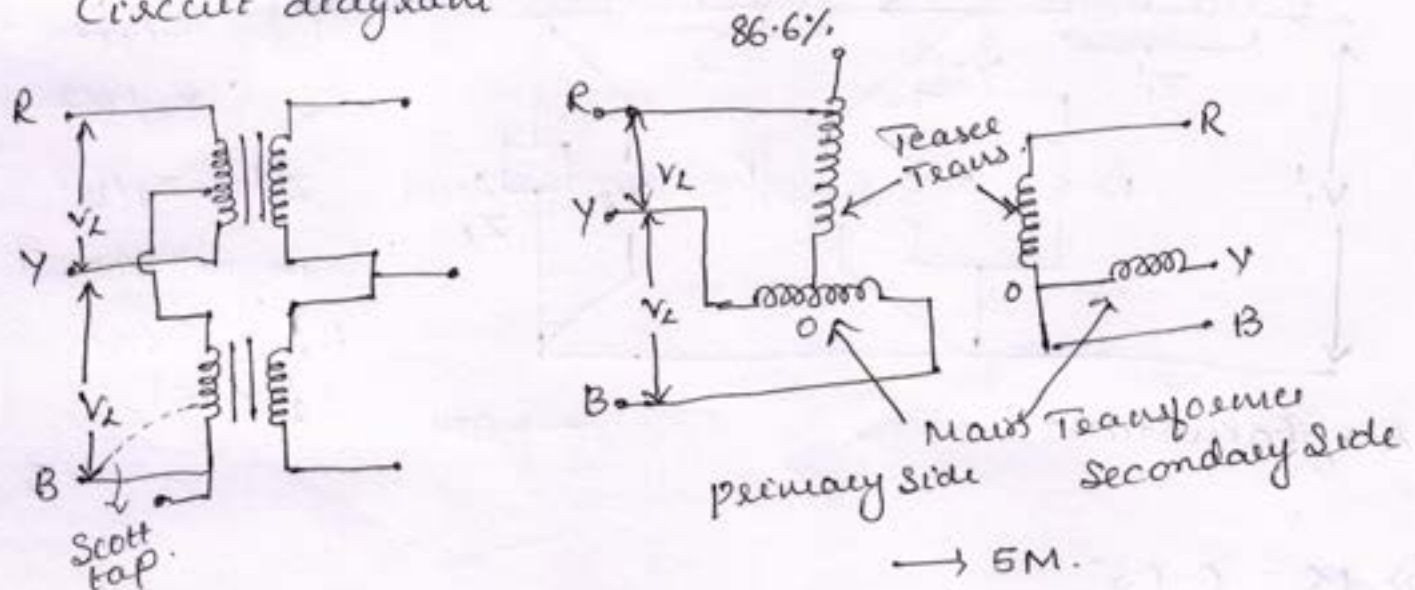 Circuit diagram
86.6%.
R
V_L
Y
V_L
B
Scott
tap.
R
V_L
Y
V_L
B
O
Teaser
Trans.
R
O
Y
B
Main Transformer
primary side
Secondary Side
→ 5M.